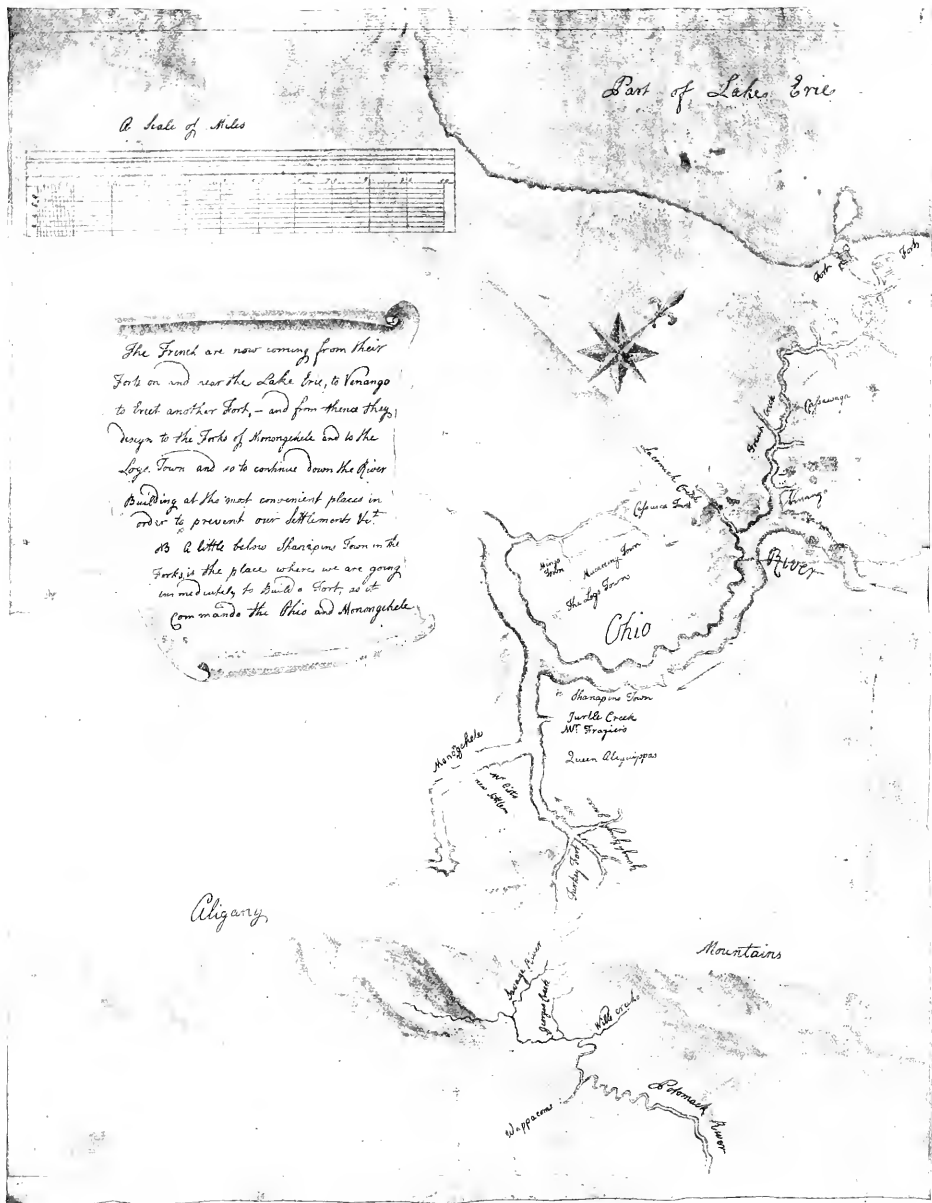 Part of Lake Erie
A Scale of Miles
Fort
Fort
The French are now coming from their
Forts on and near the Lake Erie, to Venango
to Erect another Fort, – and from thence they
design to the Forks of Monongehele and to the
Logs Town and so to continue down the River
Building at the most convenient places in
order to prevent our Settlements &ct.
NB A little below Shanapins Town in the
Forks, is the place where we are going
immediately to Build a Fort, as it
Commands the Ohio and Monongehele
French Creek
Cussewaga
Lacomick Creek
Venango
River
Mingo
Town
Muraring Town
The Logs Town
Ohio
Shanapins Town
Turtle Creek
Mr. Fraziers
Queen Aliquippas
Monongehele
Mr Gists
new Settlem
Turkey Foot
Aligany
Mountains
Savage River
Georges Creek
Wills Creek
Wappacomo
Potomack River